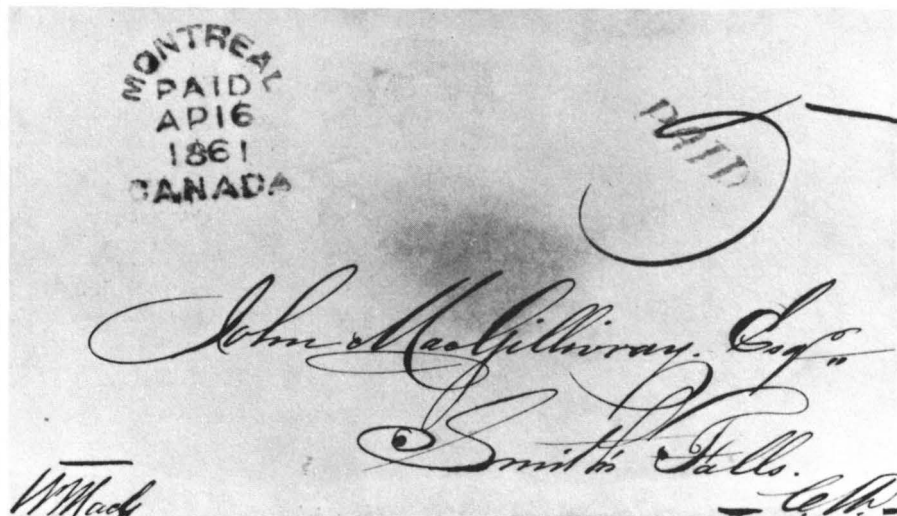 MONTREAL
PAID
AP 16
1861
CANADA
PAID
John MacGillivray. Esqr
Smith's Falls.
C.W.